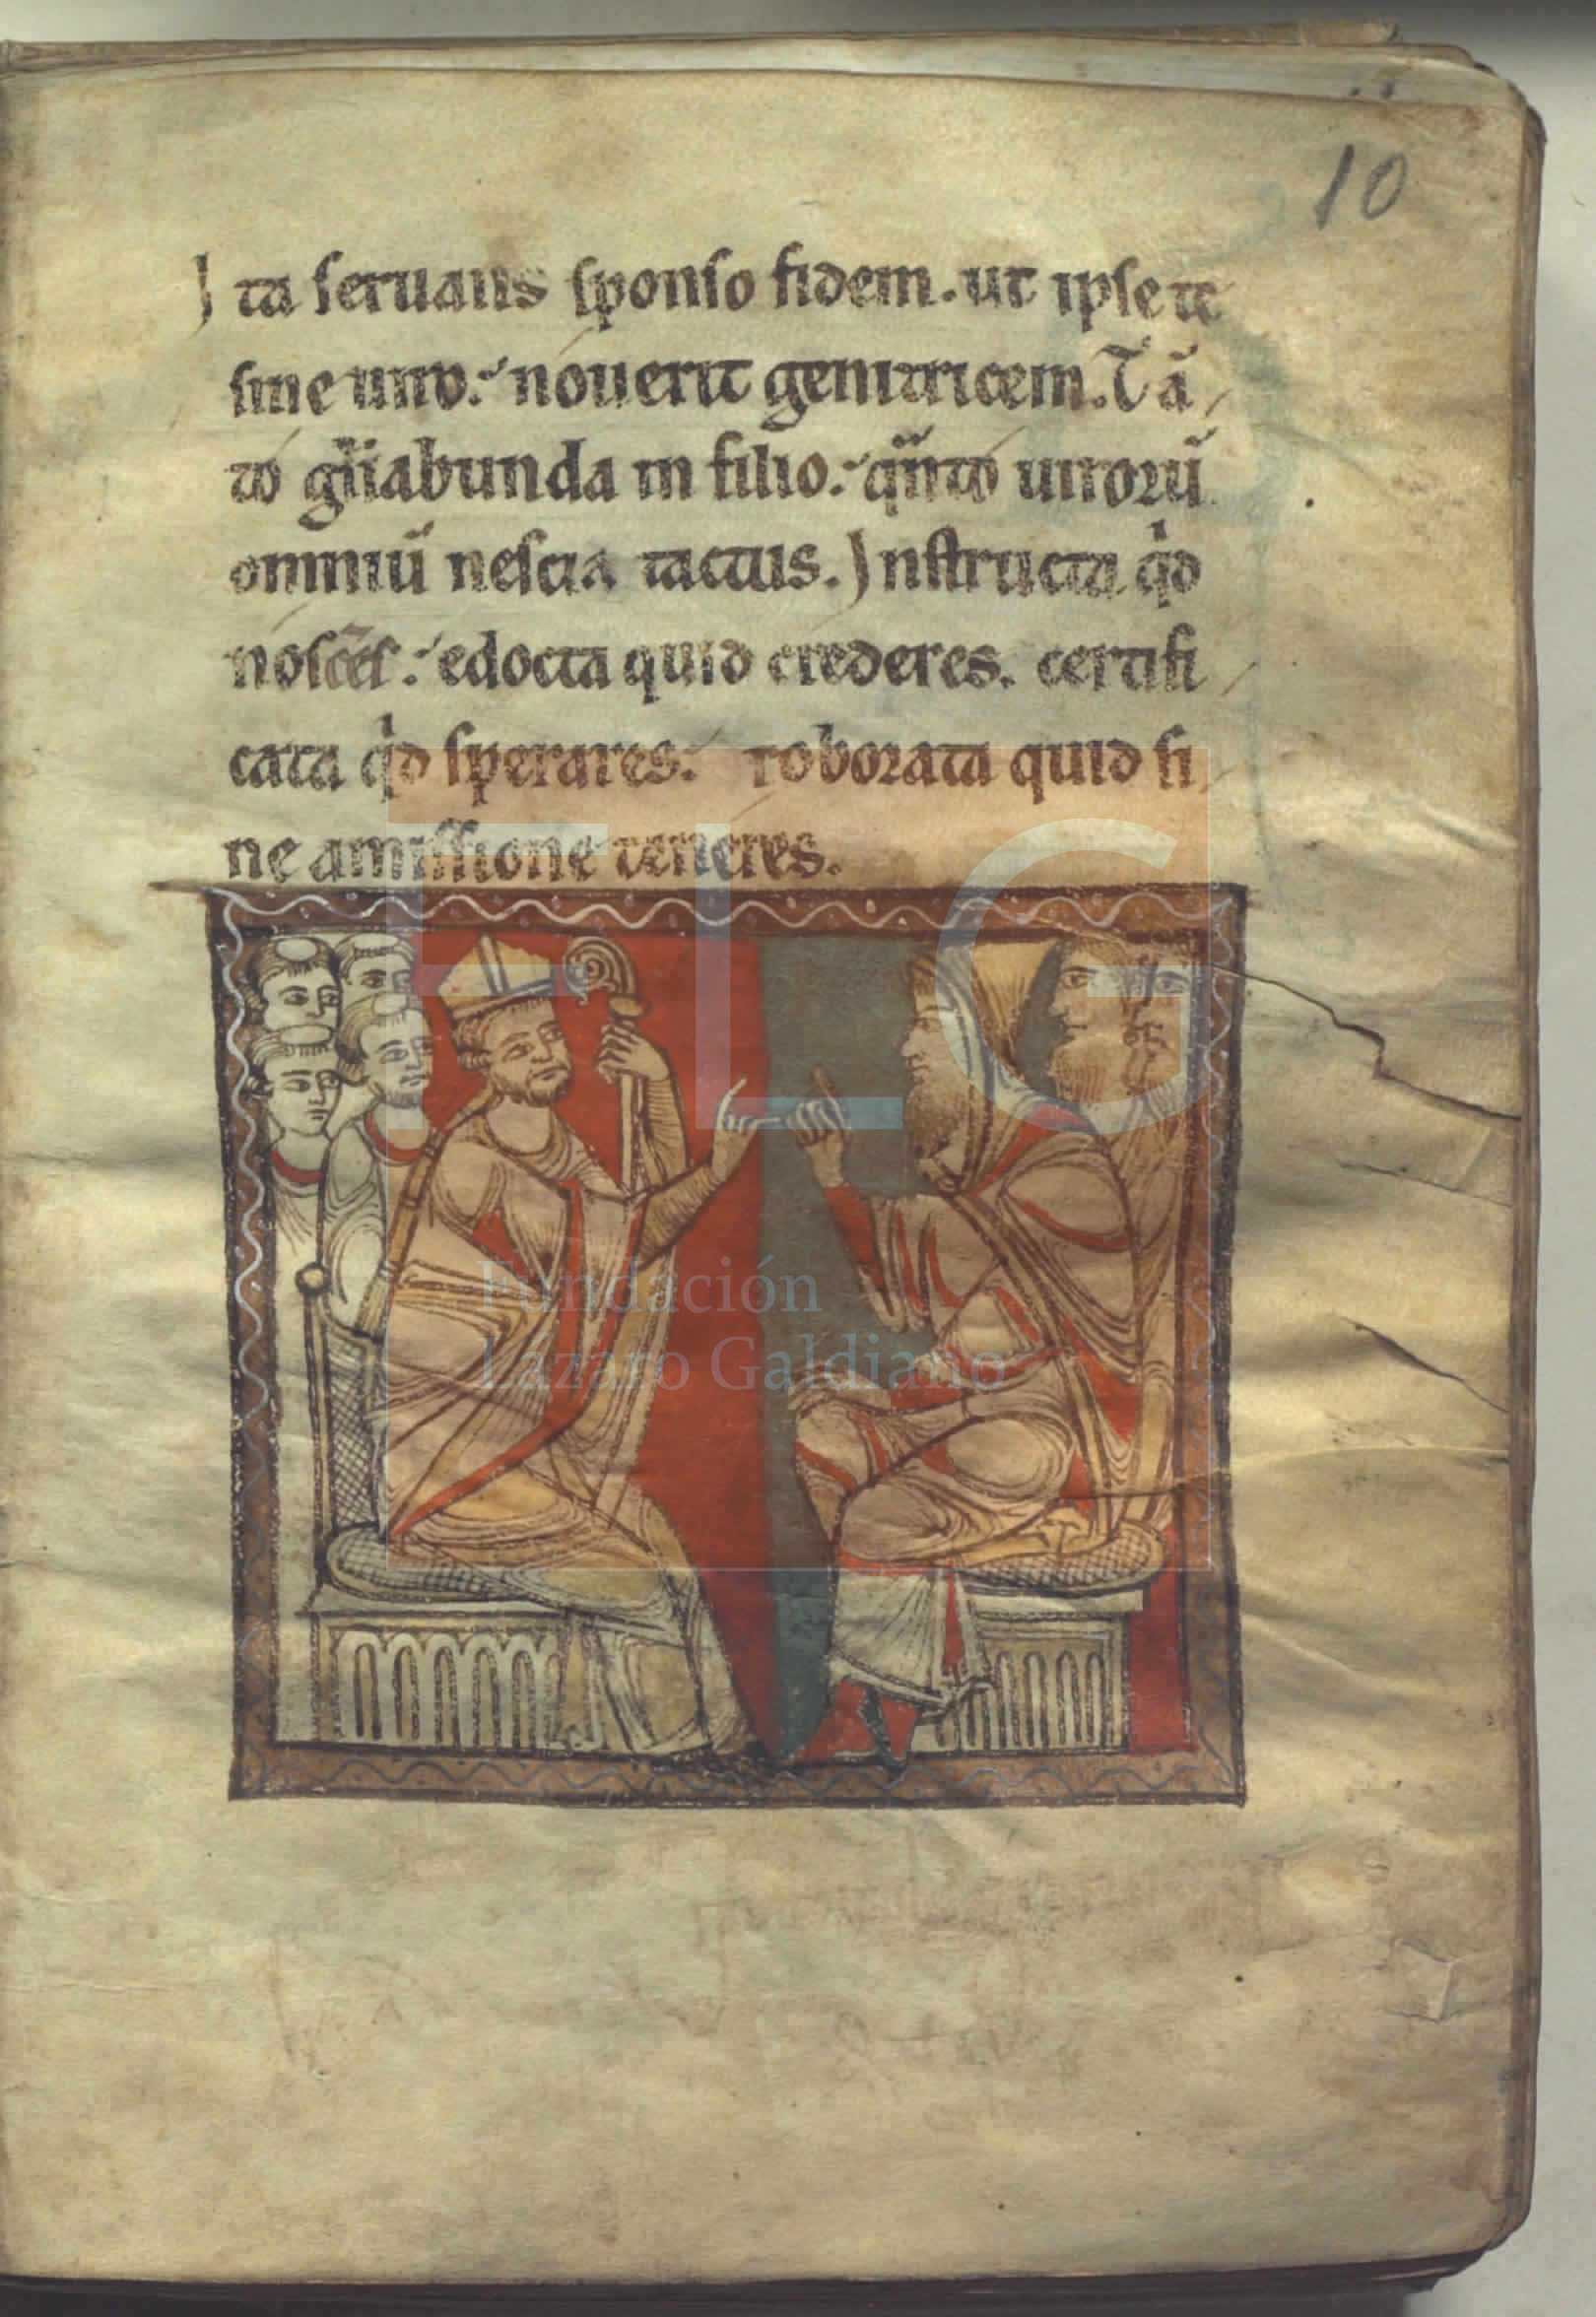 10
Ita seruans sponso fidem. ut ipse te
sine uiro: nouerit genitricem. Tā
to gr̄iabunda in filio: qn̄to uirorū
omniū nescia tactus. Instructa qͥd
nosc̄es: edocta quid crederes. certifi
cata qͥd sperares: roborata quid si
ne amissione teneres.
FLG
Fundación
Lázaro Galdiano